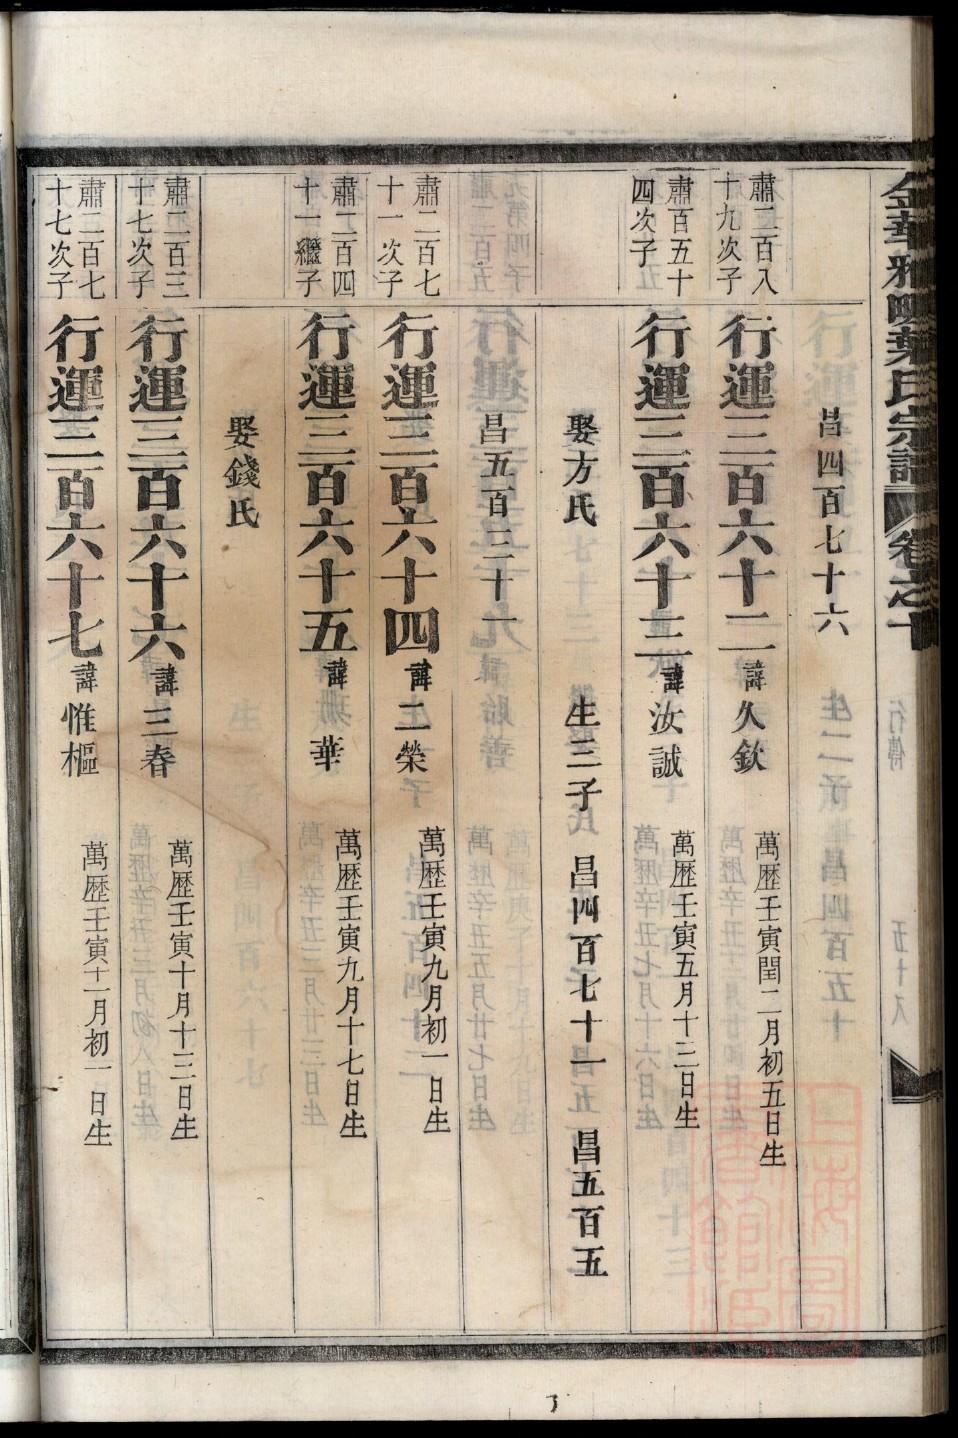 金華雅畈葉氏宗譜 卷之十 行傳 五十八
昌四百七十六
肅二百八十九次子 行運三百六十二 諱久欽 萬歷壬寅閏二月初五日生
肅百五十四次子 行運三百六十三 諱汝誠 萬歷壬寅五月十三日生
娶方氏 生三子 昌四百七十一 昌五百五
昌五百二十一
肅二百七十一次子 行運三百六十四 諱二榮 萬歷壬寅九月初一日生
肅二百四十一繼子 行運三百六十五 諱華 萬歷壬寅九月十七日生
娶錢氏
肅二百三十七次子 行運三百六十六 諱三春 萬歷壬寅十月十三日生
肅二百七十七次子 行運三百六十七 諱惟樞 萬歷壬寅十一月初一日生